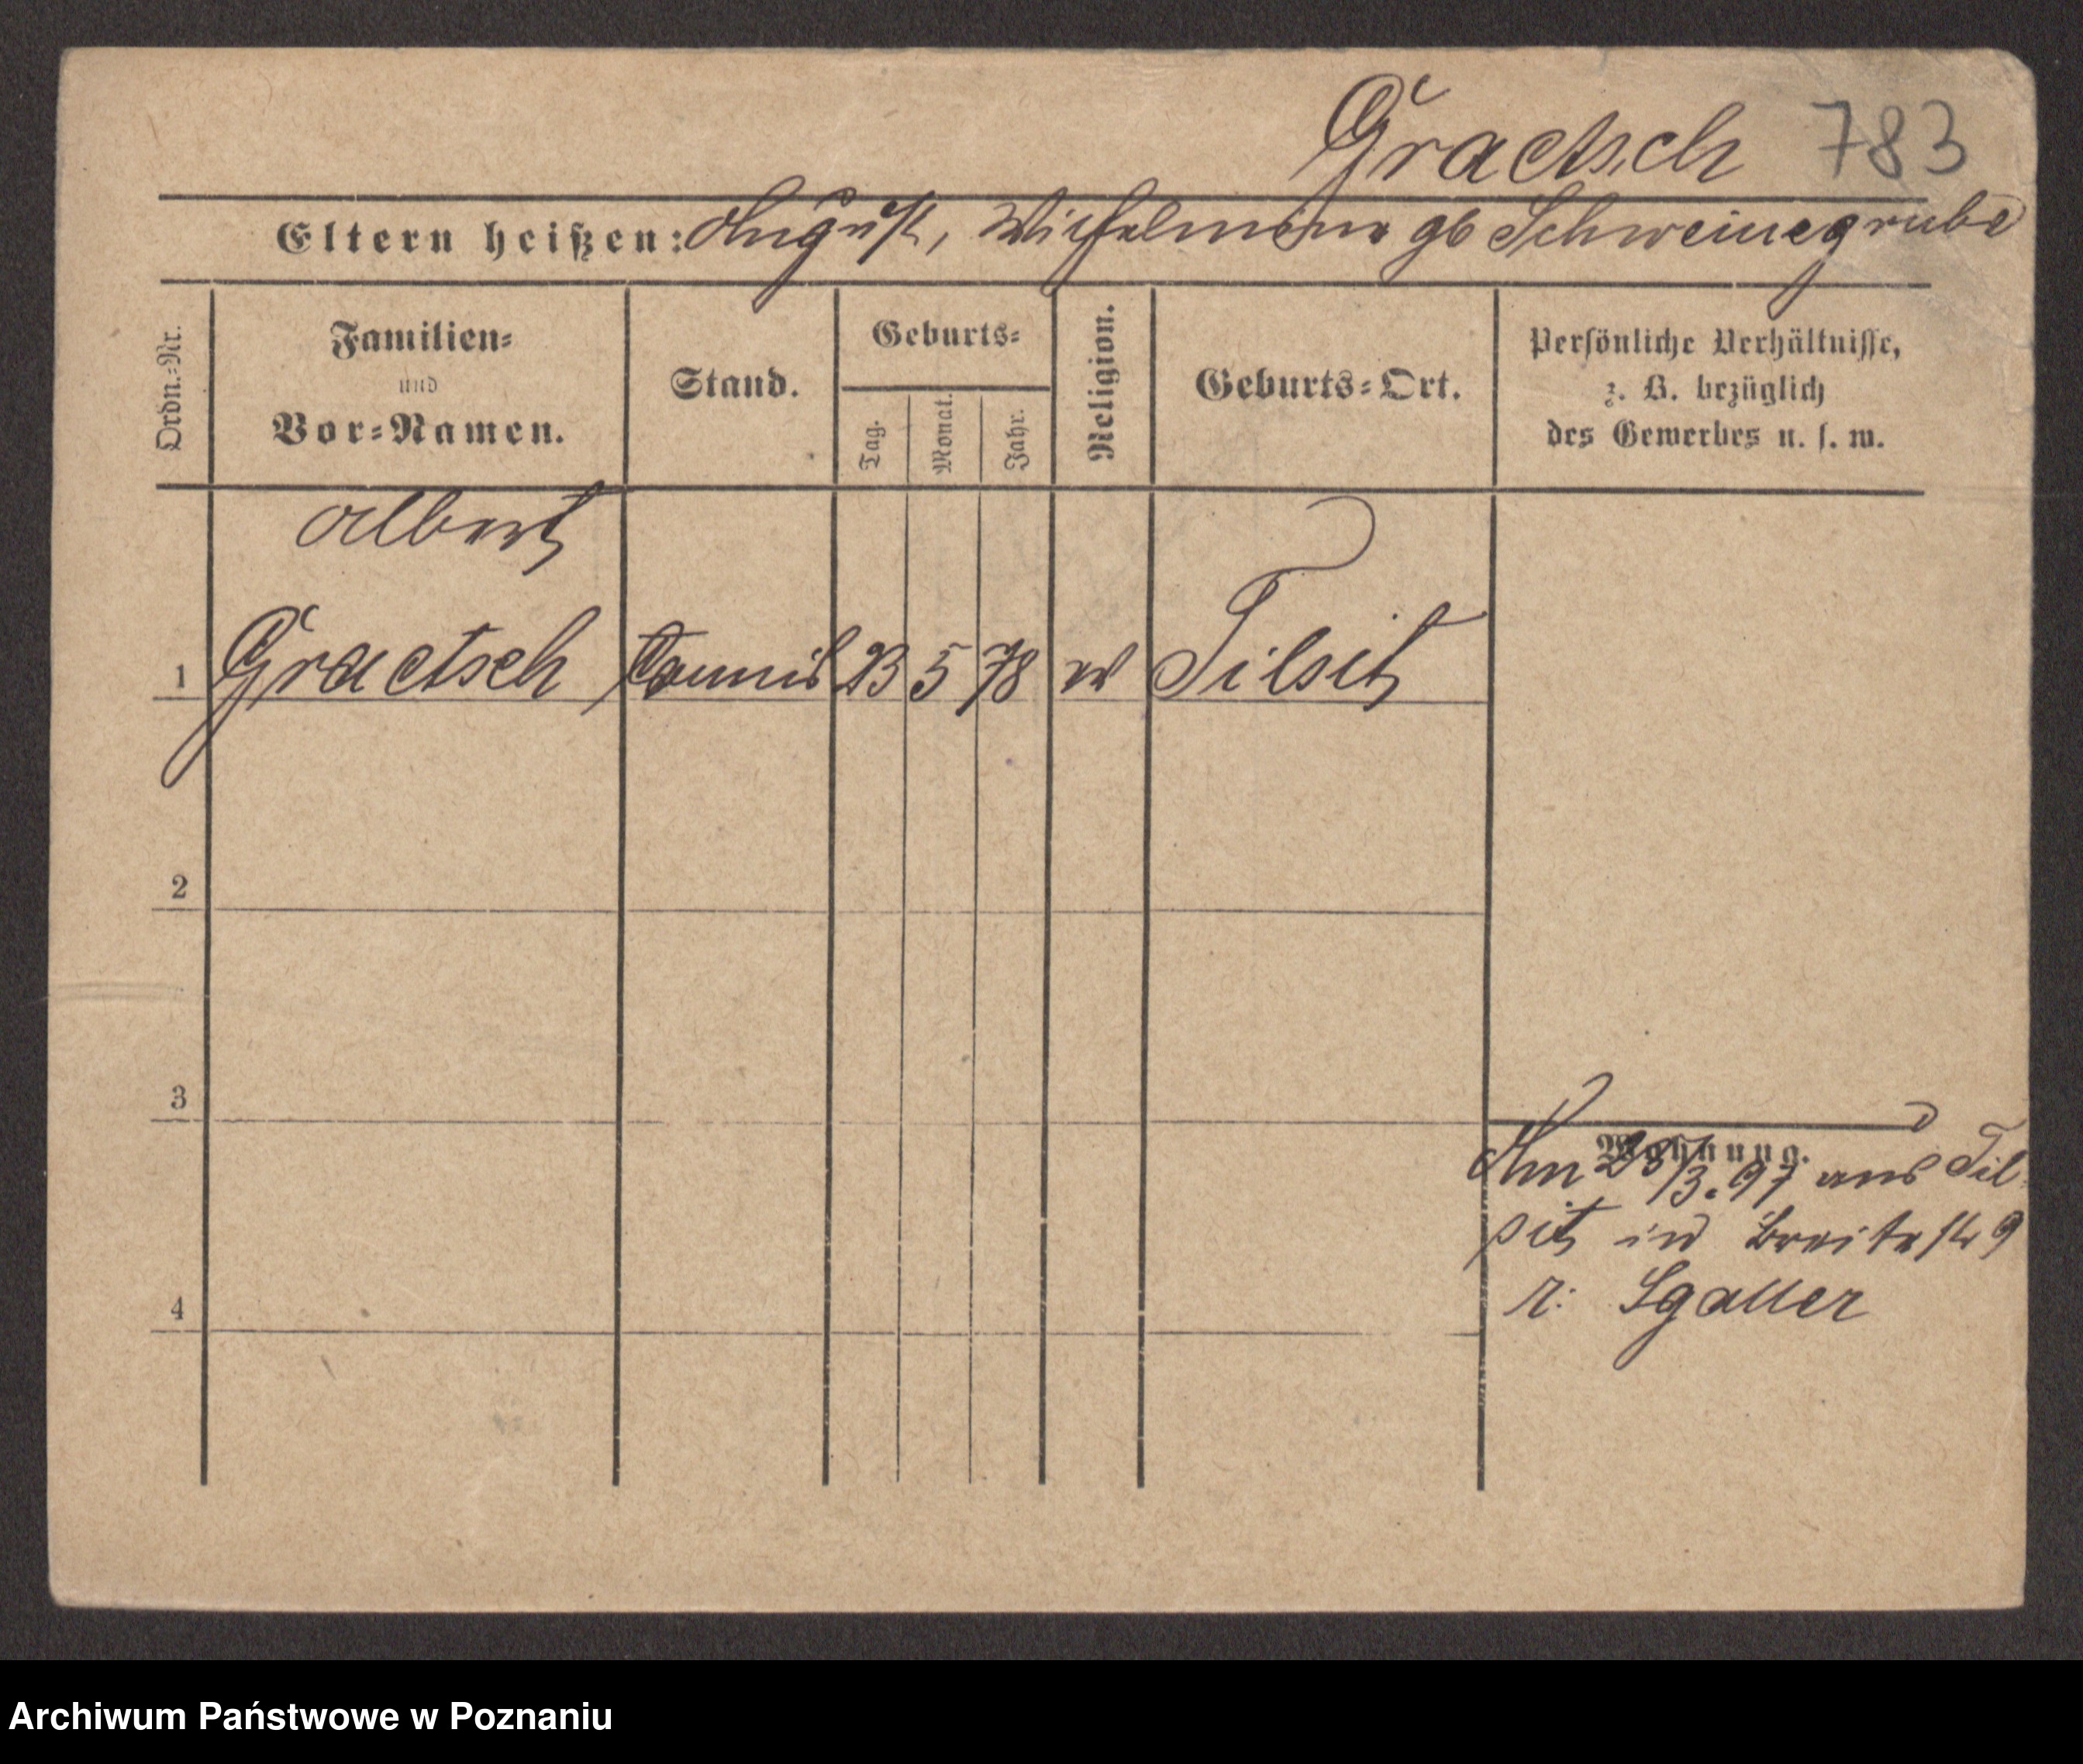 Graetsch 783
Eltern heißen: August, Wilhelmine gb Schweinegrube
Ordn.-Nr.
Familien-
und
Vor-Namen.
Stand.
Geburts-
Tag.
Monat.
Jahr.
Religion.
Geburts-Ort.
Persönliche Verhältnisse,
z. B. bezüglich
des Gewerbes u. s. w.
Albert
1 Graetsch Commis 23 5 78 ev Tilsit
2
3
Wohnung.
Am 28/3.97 aus Til
sit in Breitestr 9
4
r: Sgaller
Archiwum Państwowe w Poznaniu